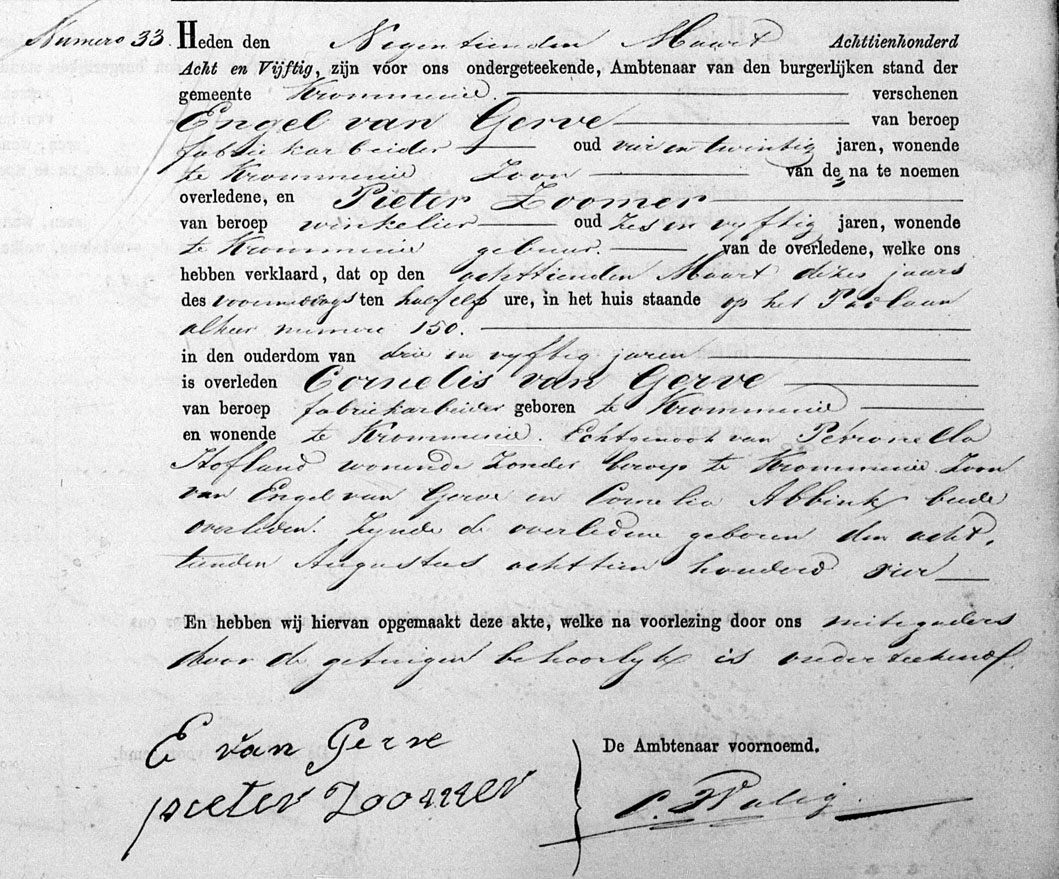 Numero 33. Heden den Negentienden Maart Achttienhonderd
Acht en Vijftig, zijn vóor ons ondergeteekende, Ambtenaar van den burgerlijken stand der
gemeente Krommenie. verschenen
Engel van Gerve van beroep
fabriekarbeider oud vier en twintig jaren, wonende
te Krommenie Zoon van de na te noemen
overledene, en Pieter Zoomer
van beroep winkelier oud zes en vyftig jaren, wonende
te Krommenie gebuur. van de overledene, welke ons
hebben verklaard, dat op den achttienden Maart dezes jaars
des voormiddags ten half elf ure, in het huis staande op het
alhier numero 150.
in den ouderdom van drie en vyftig jaren
is overleden Cornelis van Gerve
van beroep fabriekarbeider geboren te Krommenie
en wonende te Krommenie. Echtgenoot van Petronella
Hofland wonende zonder beroep te Krommenie Zoon
van Engel van Gerve en Cornelia Abbink beide
overleden. Zynde de overledene geboren den acht,
tienden Augustus achttien honderd vier
En hebben wij hiervan opgemaakt deze akte, welke na voorlezing door ons mitsgaders
door de getuigen behoorlyk is onderteekend.
E van Gerve
De Ambtenaar voornoemd.
pieter Zoomer